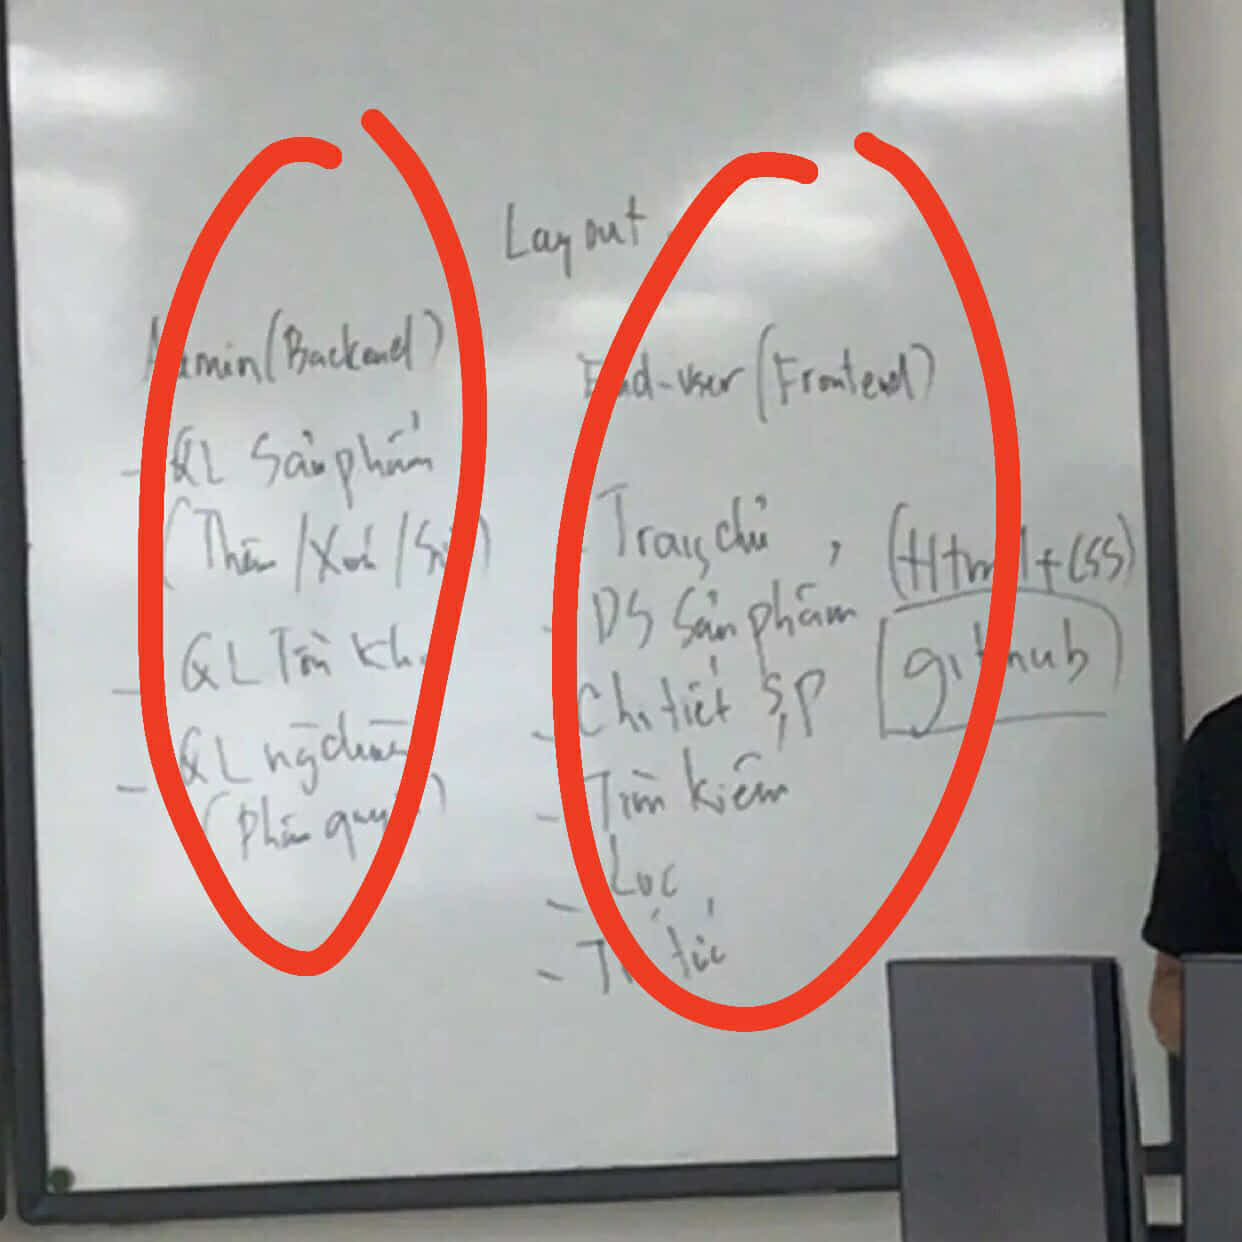 Layout
Admin (Backend)
- QL Sản phẩm
(Thêm / Xoá / Sử)
- QL Tồn kh
- QL ng dùng
(phân quyề)
End-user (Frontend)
- Trang chủ, (Html + CSS)
- DS Sản phẩm
github
- Chi tiết SP
- Tìm kiếm
- Lọc
- Tin tức